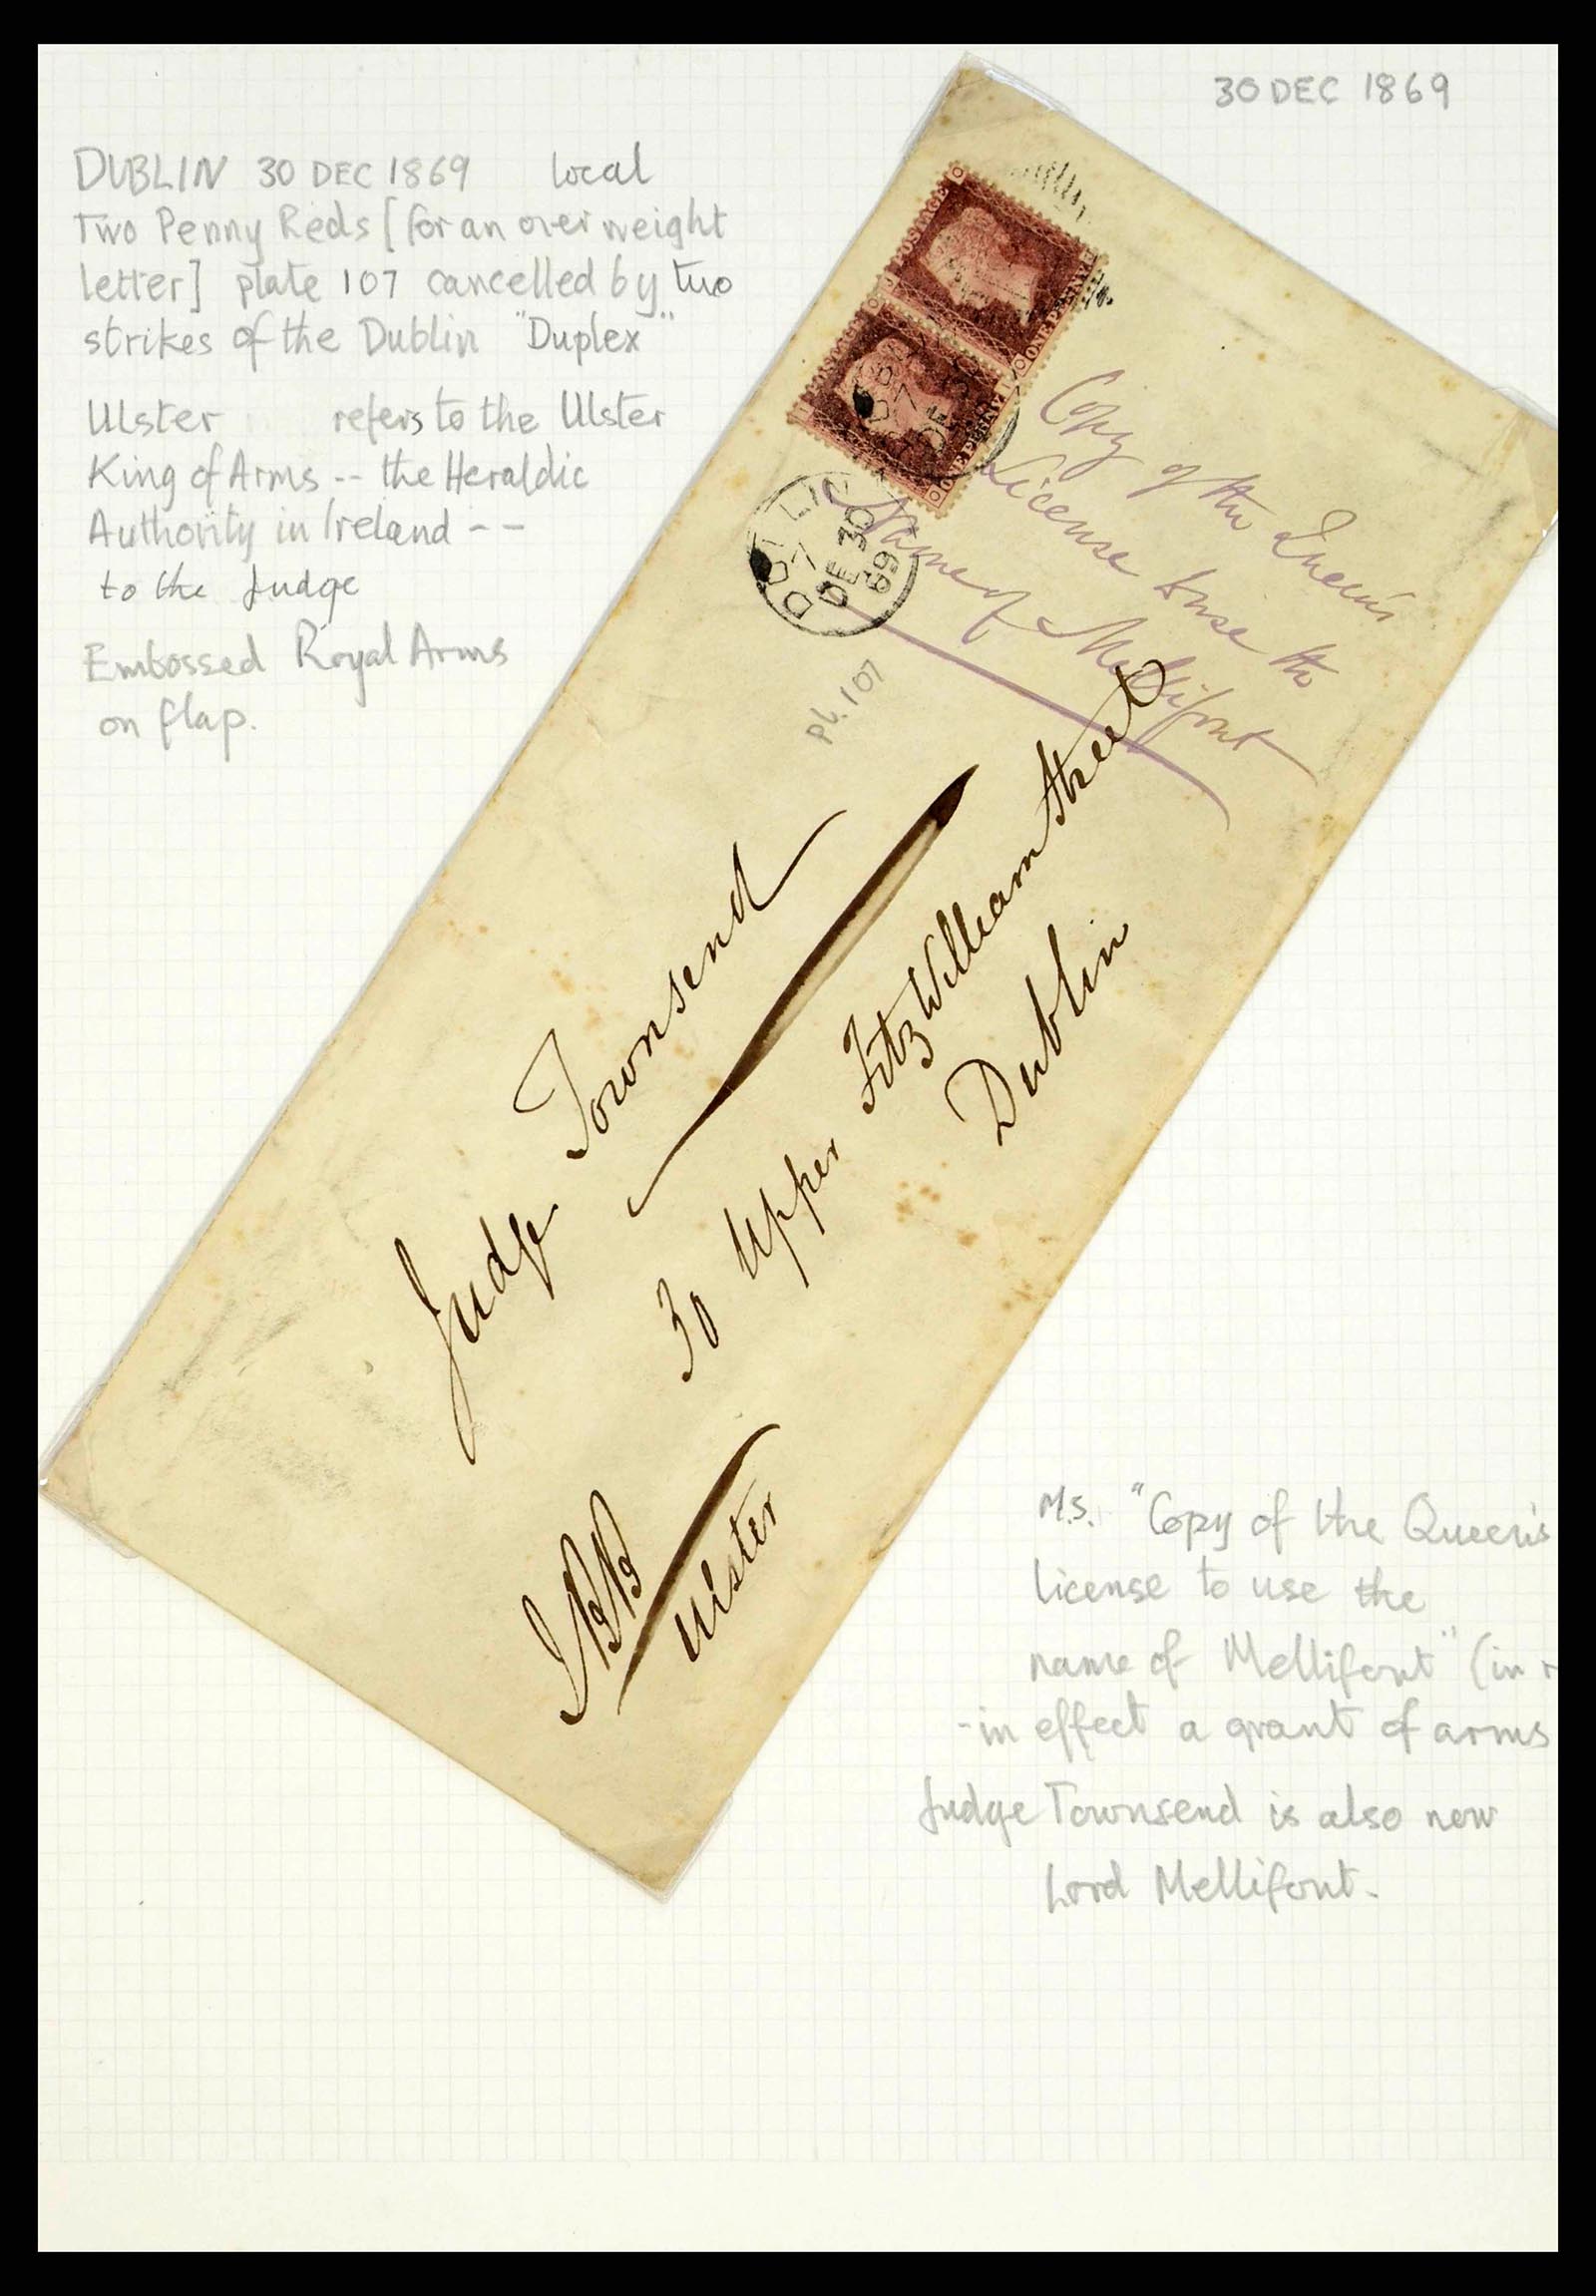 30 DEC 1869
DUBLIN 30 DEC 1869 local
Two Penny Reds [for an over weight
letter] plate 107 cancelled by two
strikes of the Dublin "Duplex"
Ulster refers to the Ulster
King of Arms -- the Heraldic
Authority in Ireland --
to the Judge
Embossed Royal Arms
on flap.
POSTAGE
ONE PENNY
POSTAGE
ONE PENNY
DUBLIN
7
DE 30
69
Copy of the Queen's
License to use the
Name of Mellifont
Pl. 107
Judge Townsend
30 Upper FitzWilliam Street
Dublin
JBB
Ulster
M.S. "Copy of the Queen's
license to use the
name of Mellifont" (in
- in effect a grant of arms
Judge Townsend is also now
Lord Mellifont.